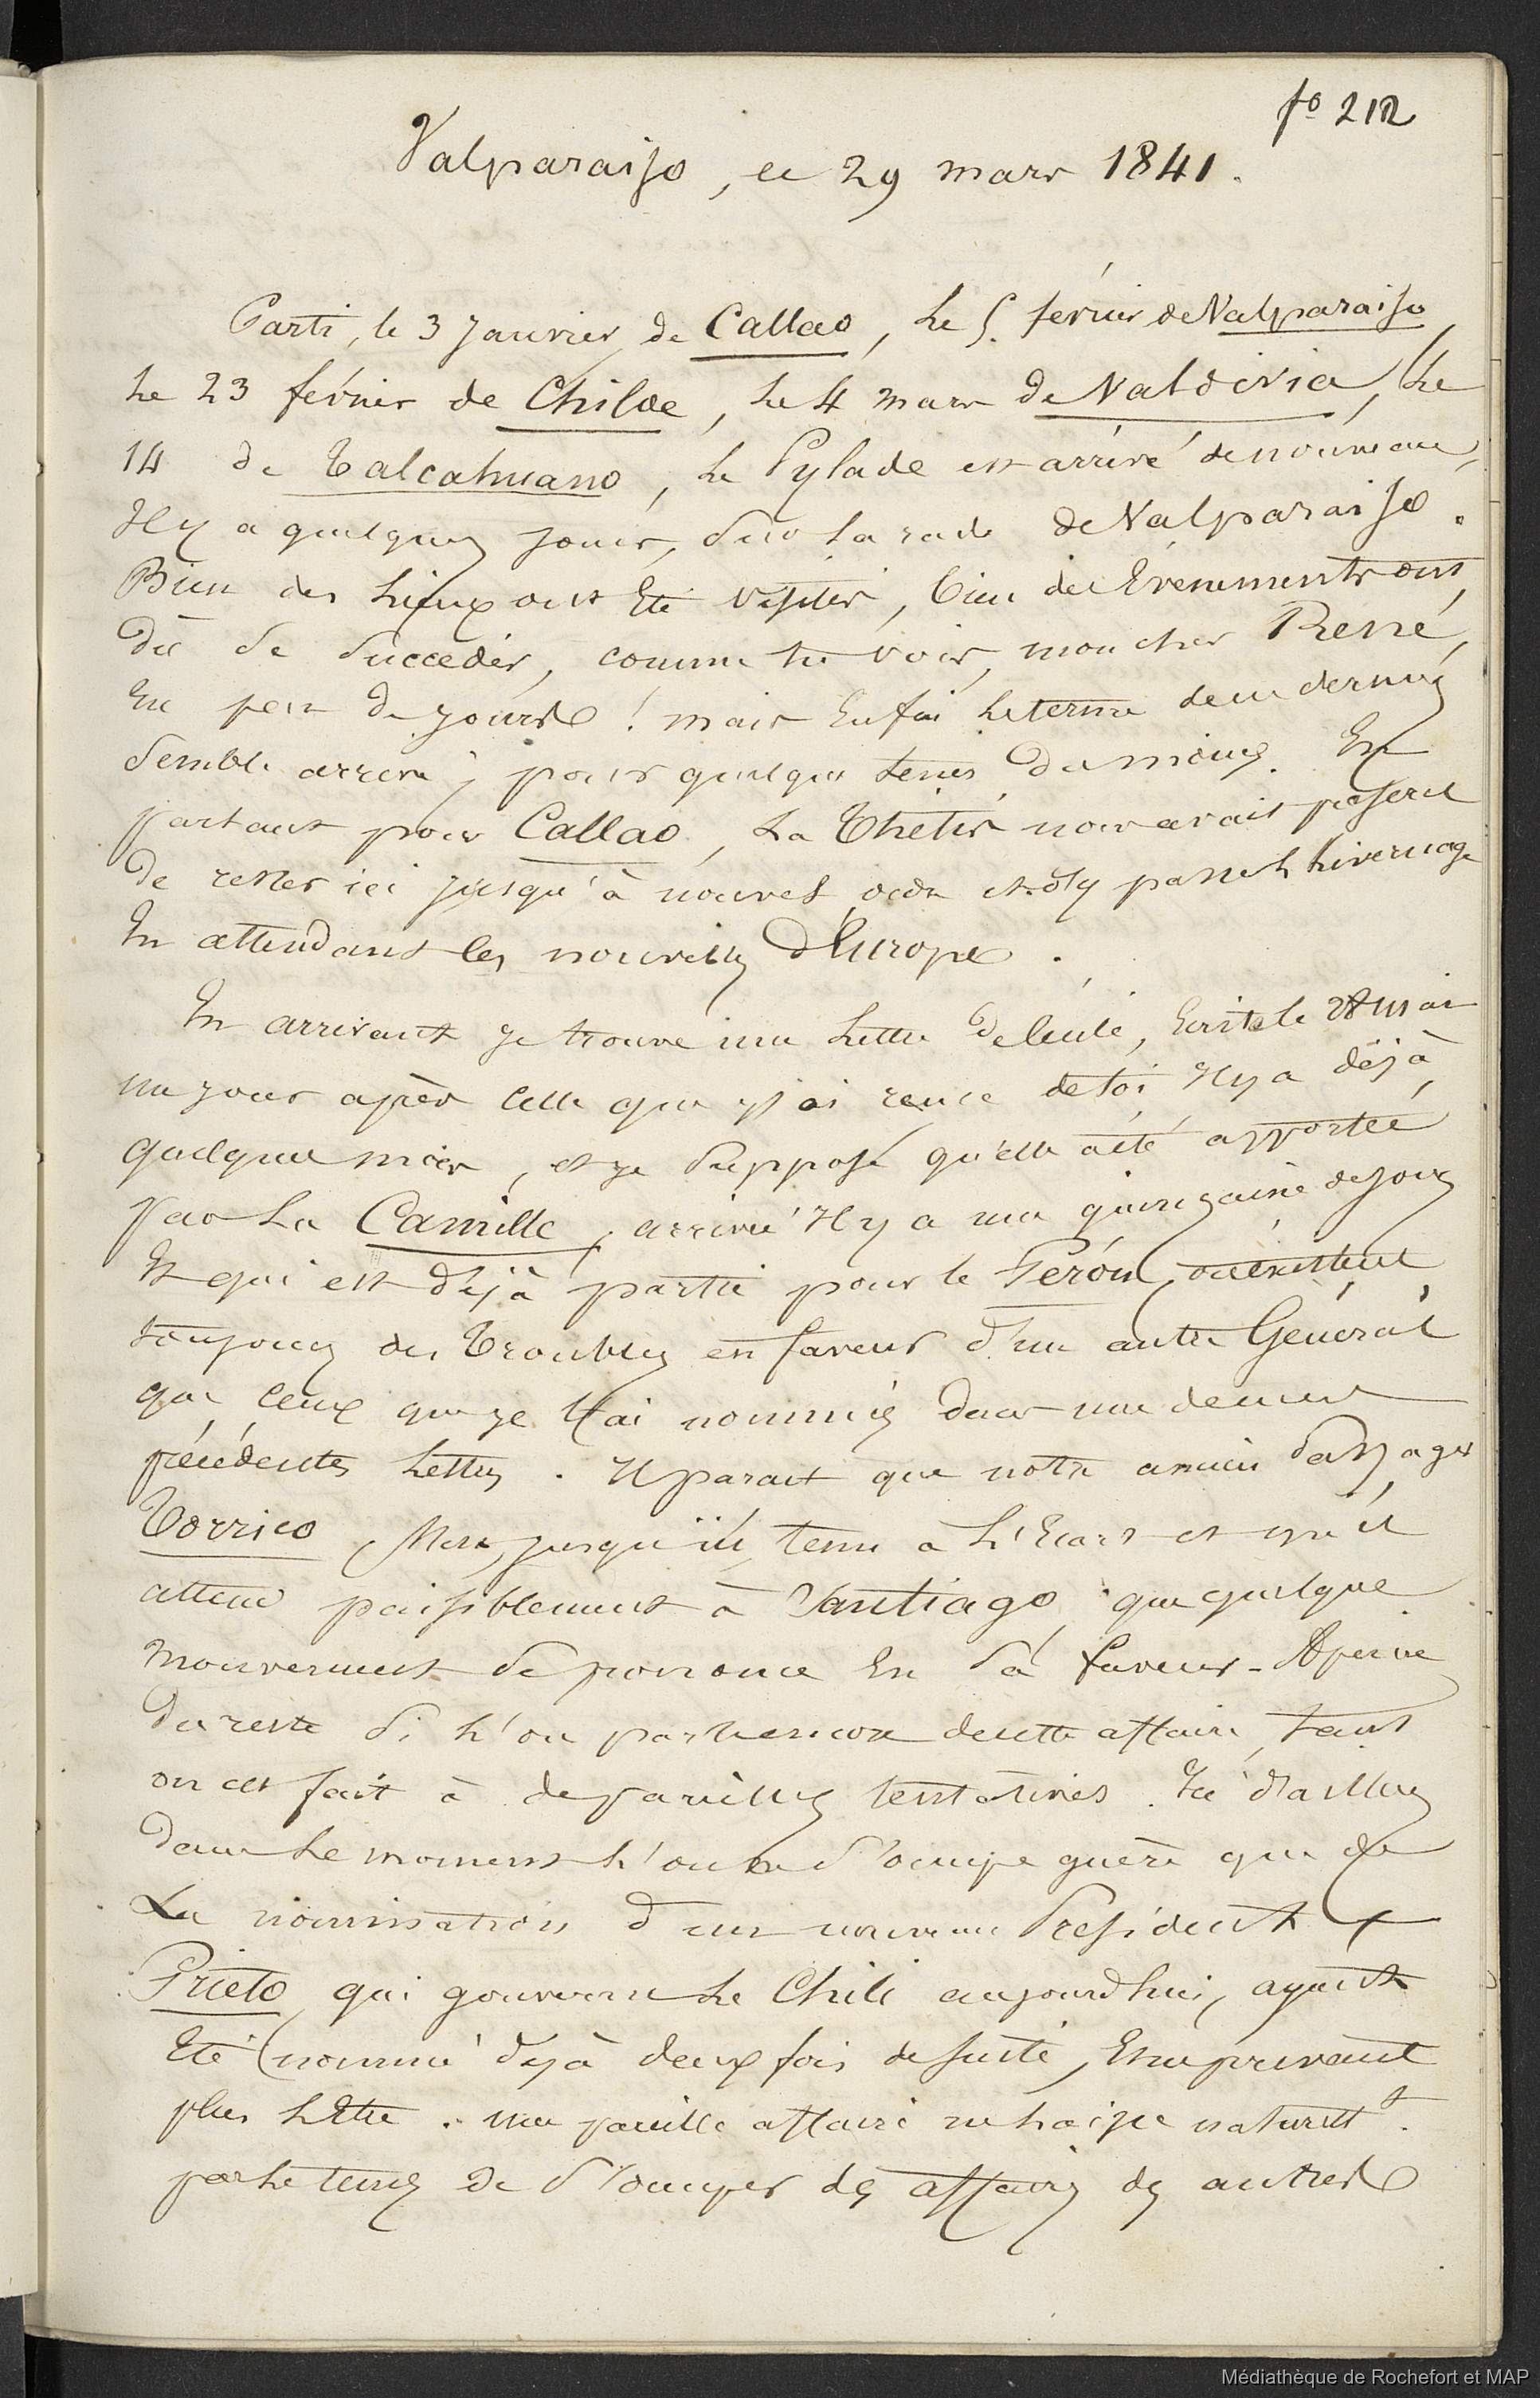 fo 212
Valparaiso, le 29 mars 1841.
Parti, le 3 Janvier, de Callao, le 5. février de Valparaiso,
le 23 février de Chiloe, le 4 mars de Valdivia, le
14 de Talcahuano, le Pylade est arrivé de nouveau,
Il y a quelques jours, sur la rade de Valparaiso.
Bien des lieux ont été visités, bien des Evenements ont
dû se succeder, comme tu vois, mon cher René,
En peu de jours ! mais Enfin le terme de ce dernier
semble arrivé, pour quelque tems du moins. En
partant pour Callao, la Thétis nous avait prescrit
de rester ici jusqu'à nouvel ordre et d'y passer l'hivernage
En attendant les nouvelles d'Europe.
En arrivant je trouve une lettre de Lulé, Ecrite le 28 mai
un jour après celle que j'ai reçue de toi Il y a déjà
quelques mois, et je suppose qu'elle a été apportée
par la Camille, arrivée Il y a une quinzaine de jours
Et qui est déjà partie pour le Pérou, où existent
toujours des Troubles en faveur d'un autre Général
que ceux que je t'ai nommés dans une de mes
précédentes lettres. Il parait que notre ancien passager
Torrico s'est, jusqu'ici, tenu à l'Ecart et qu'il
attend paisiblement à Santiago que quelque
mouvement se prononce En sa faveur - A peine
du reste si l'on parle encore de cette affaire, tant
on est fait à de pareilles tentatives. Ici d'ailleurs
dans le moment l'on ne s'occupe guère que de
La nomination d'un nouveau Président
Prieto, qui gouverne le Chili aujourd'hui, ayant
Eté nommé déjà deux fois de suite, En ne pouvant
plus l'Etre. une pareille affaire ne laisse naturellt.
pas le tems de s'occuper des affaires des autres
Médiathèque de Rochefort et MAP